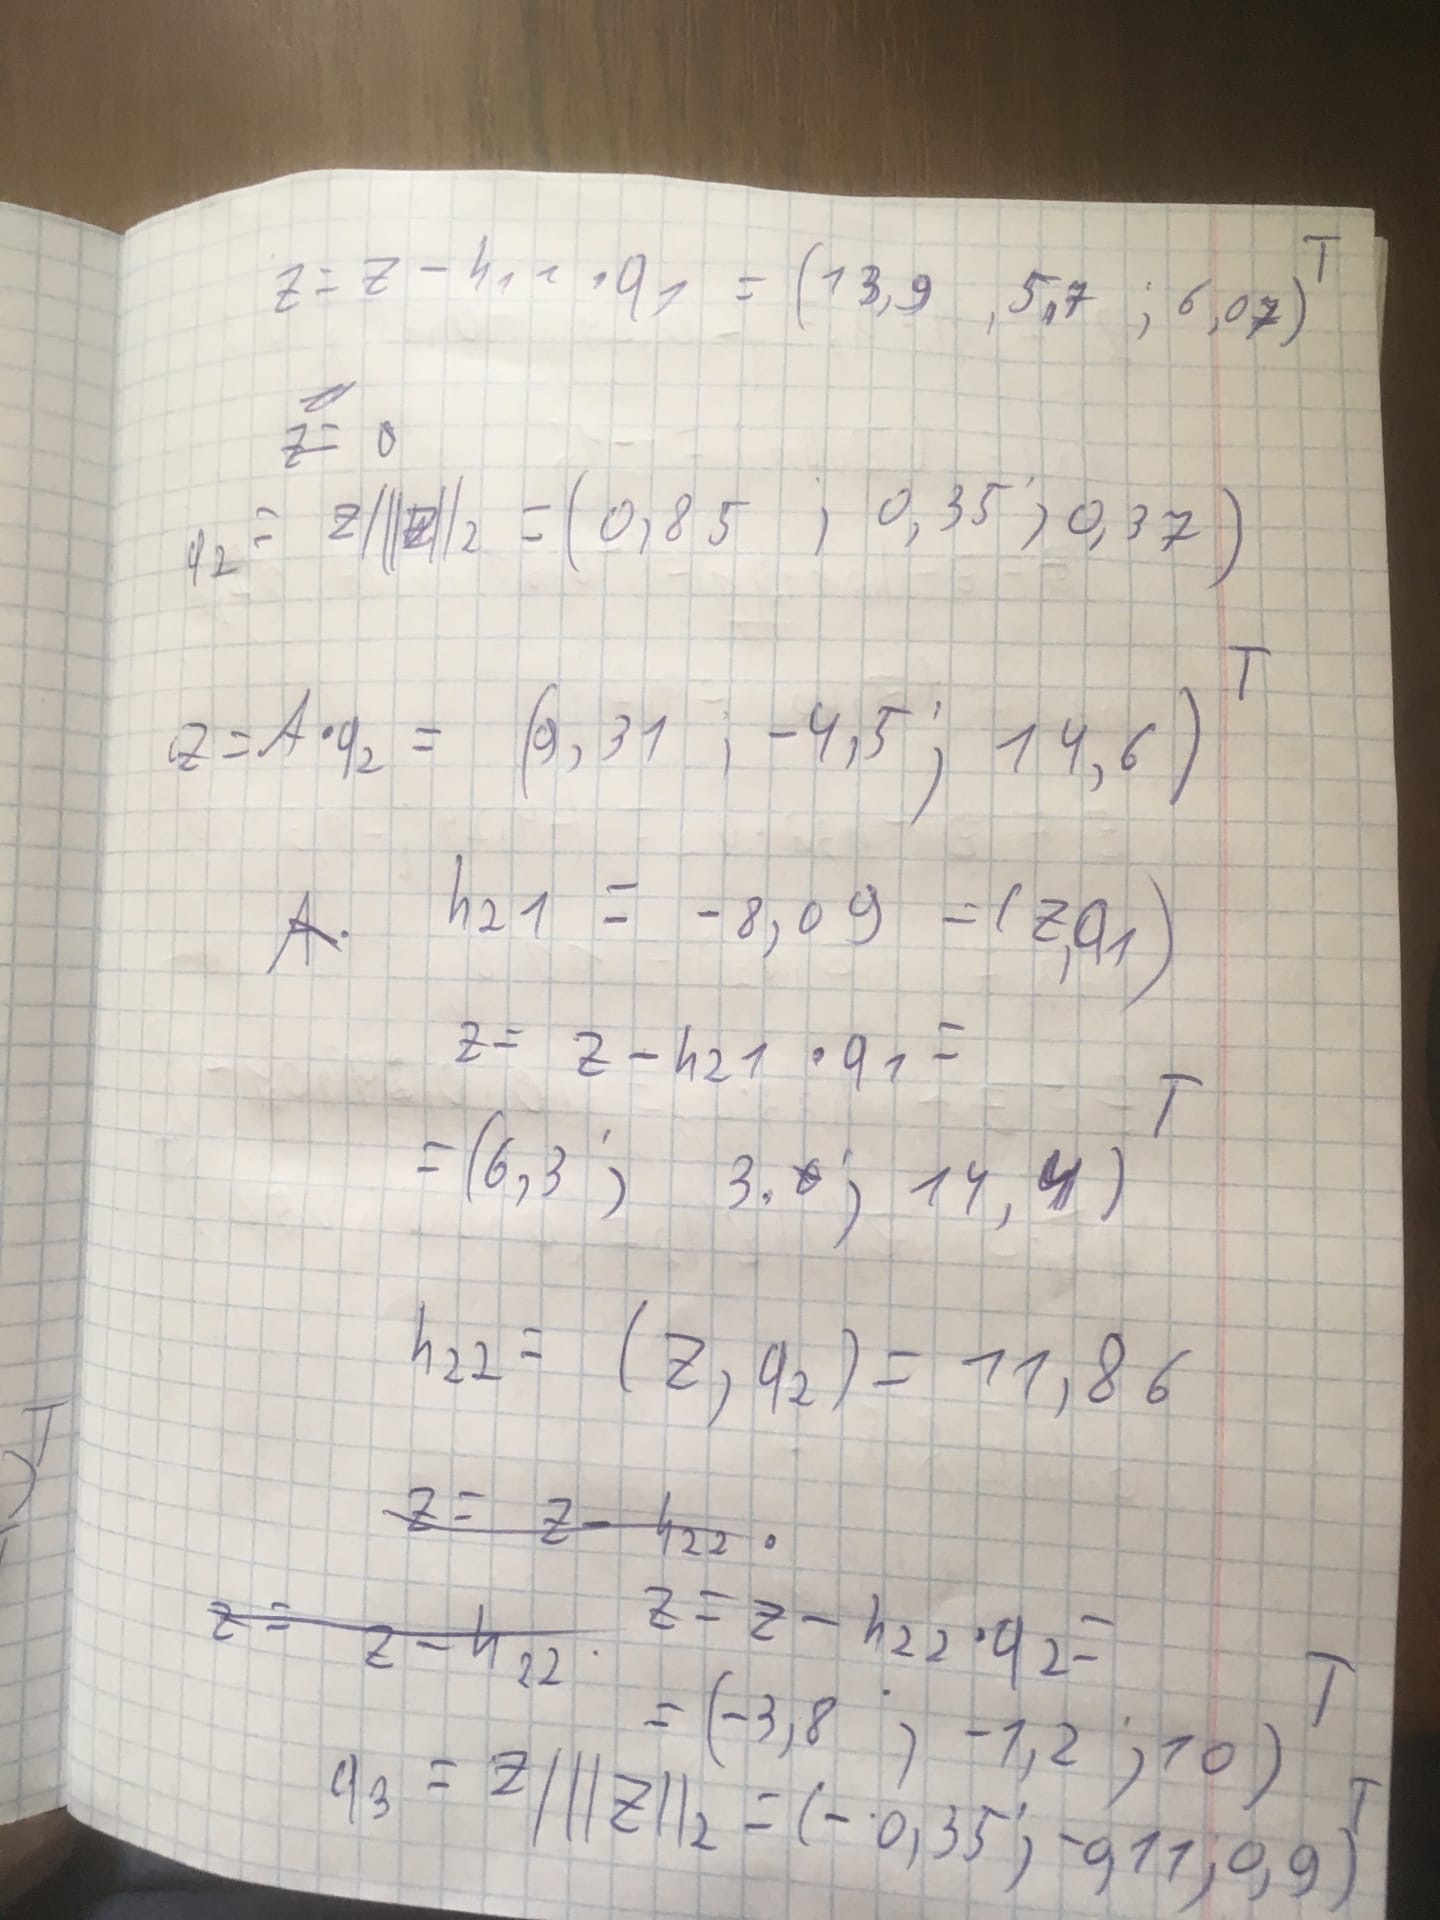 z = z - h₁₁ · q₁ = (13,9 , 5,7 ; 6,07)ᵀ
z = 0
q₂ = z/||z||₂ = (0,85 ; 0,35 ; 0,37)
z = A · q₂ = (9,31 ; -4,5 ; 14,6)ᵀ
A· h₂₁ = -8,09 = (z, q₁)
z = z - h₂₁ · q₁ =
= (6,3 ; 3. ; 14,4)ᵀ
h₂₂ = (z, q₂) = 11,86
z = z - h₂₂ ·
z = z - h₂₂ · z = z - h₂₂ · q₂ =
= (-3,8 ; -1,2 ; 10)ᵀ
q₃ = z/||z||₂ = (-0,35 ; -0,11 ; 0,9)ᵀ